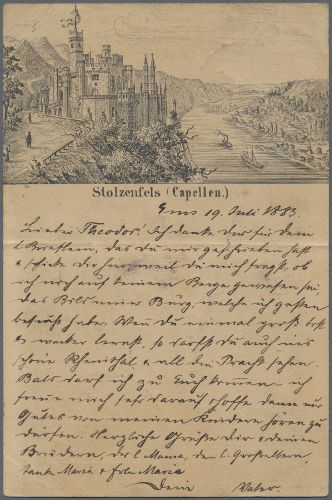 Stolzenfels (Capellen.)
Ems 19. Juli 1883.
Lieber Theodor. Ich danke dir für dein
l. Brieflein, das du mir geschrieben hast
& schicke dir hier, weil du mich fragst, ob
ich noch auf keinem Berge gewesen sei,
das Bild einer Burg, welche ich gestern
besucht habe. Wenn du einmal groß bist
& weiter lernst, so darfst du auch das
schöne Rheinthal & all die Pracht sehen.
Bald darf ich zu Euch kommen – ich
freue mich sehr darauf & hoffe dann nur
Gutes von meinen Kindern hören zu
dürfen. Herzliche Grüße dir & deinen
Brüdern, der l. Mama, den l. Großeltern,
Tante Maria & Frln Maria
Dein Vater.